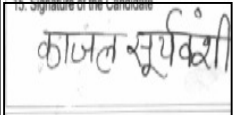 15. Signature of the Candidate
काजल सूर्यवंशी